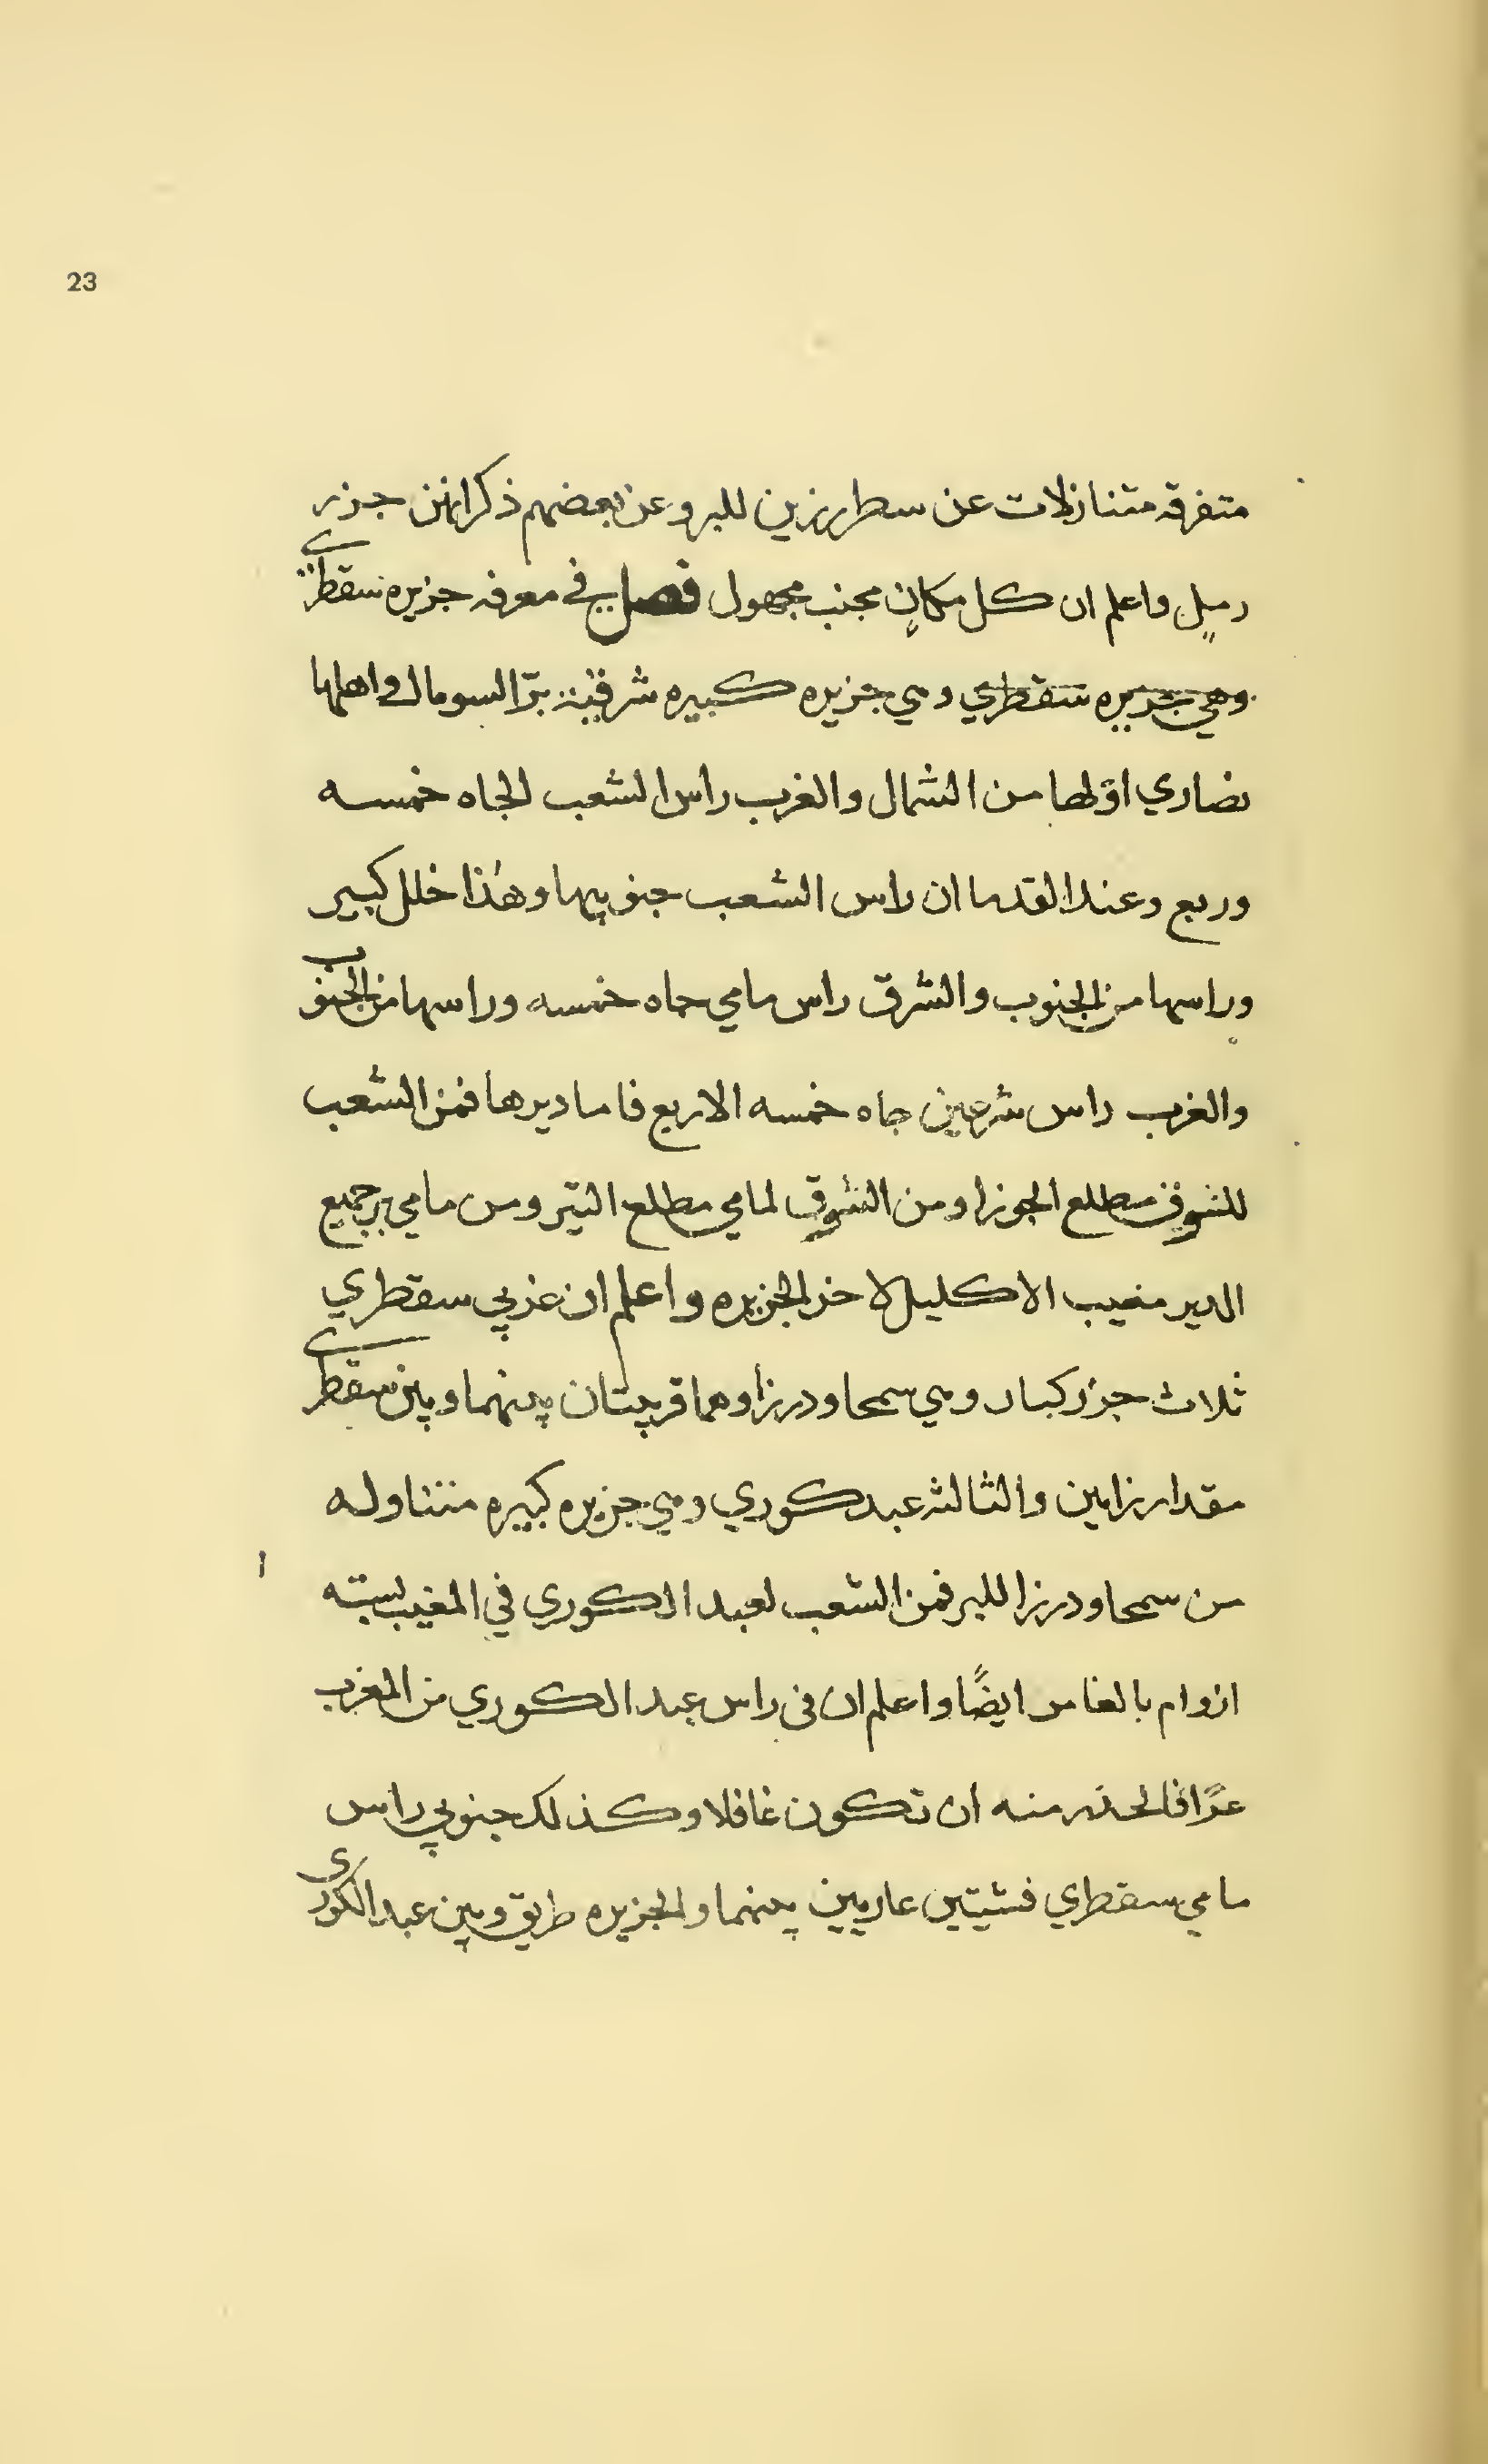 23
متفرقه متنازلات عن سطر رزين للبر وعن بعضهم ذكر انهن جزر
رمل واعلم ان كل مكان مجنب مجهول فصل في معرفه جزيره سقطري
وهي جزيره سقطري وهي جزيره كبيره شرقية برّ السومال واهلها
نصاري اوّلها من الشمال والغرب راس الشعب الجاه خمسه
وربع وعند القدما ان راس الشعب جنوبيها وهذا خلل كبير
وراسها من الجنوب والشرق راس مامي جاه خمسه وراسها من الجنوب
والغرب راس شرعين جاه خمسه الا ربع فاما ديرها فمن الشعب
للشوق مطلع الجوزا ومن الشوق لمامي مطلع التير ومن مامي يرجع
الدير مغيب الاكليل لاخر الجزيره واعلم ان غربي سقطري
ثلاث جزر كبار وهي سمحا ودرزا وهما قريبتان بينهما وبين سقطري
مقدار زامين والثالثه عبد كوري وهي جزيره كبيره متناوله
من سمحا ودرزا للبر فمن الشعب لعبد الكوري في المغيب بسته
ازوام بالغا من ايضًا واعلم ان في راس عبد الكوري من المغرب
عرًّا فالحذر منه ان تكون غافلا وكذلك جنوبي راس
مامي سقطري فشتين عاريين بينهما والجزيره طريق وبين عبد الكوري